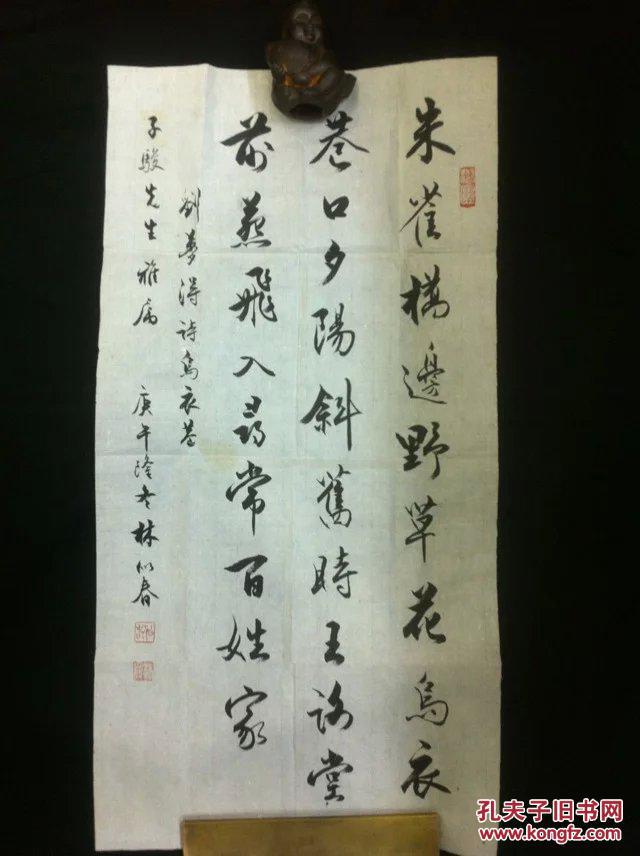 朱雀橋邊野草花烏衣
巷口夕陽斜舊時王謝堂
前燕飛入尋常百姓家
劉夢得詩烏衣巷
子駿先生雅属
庚午隆冬林似春
孔夫子旧书网
www.kongfz.com